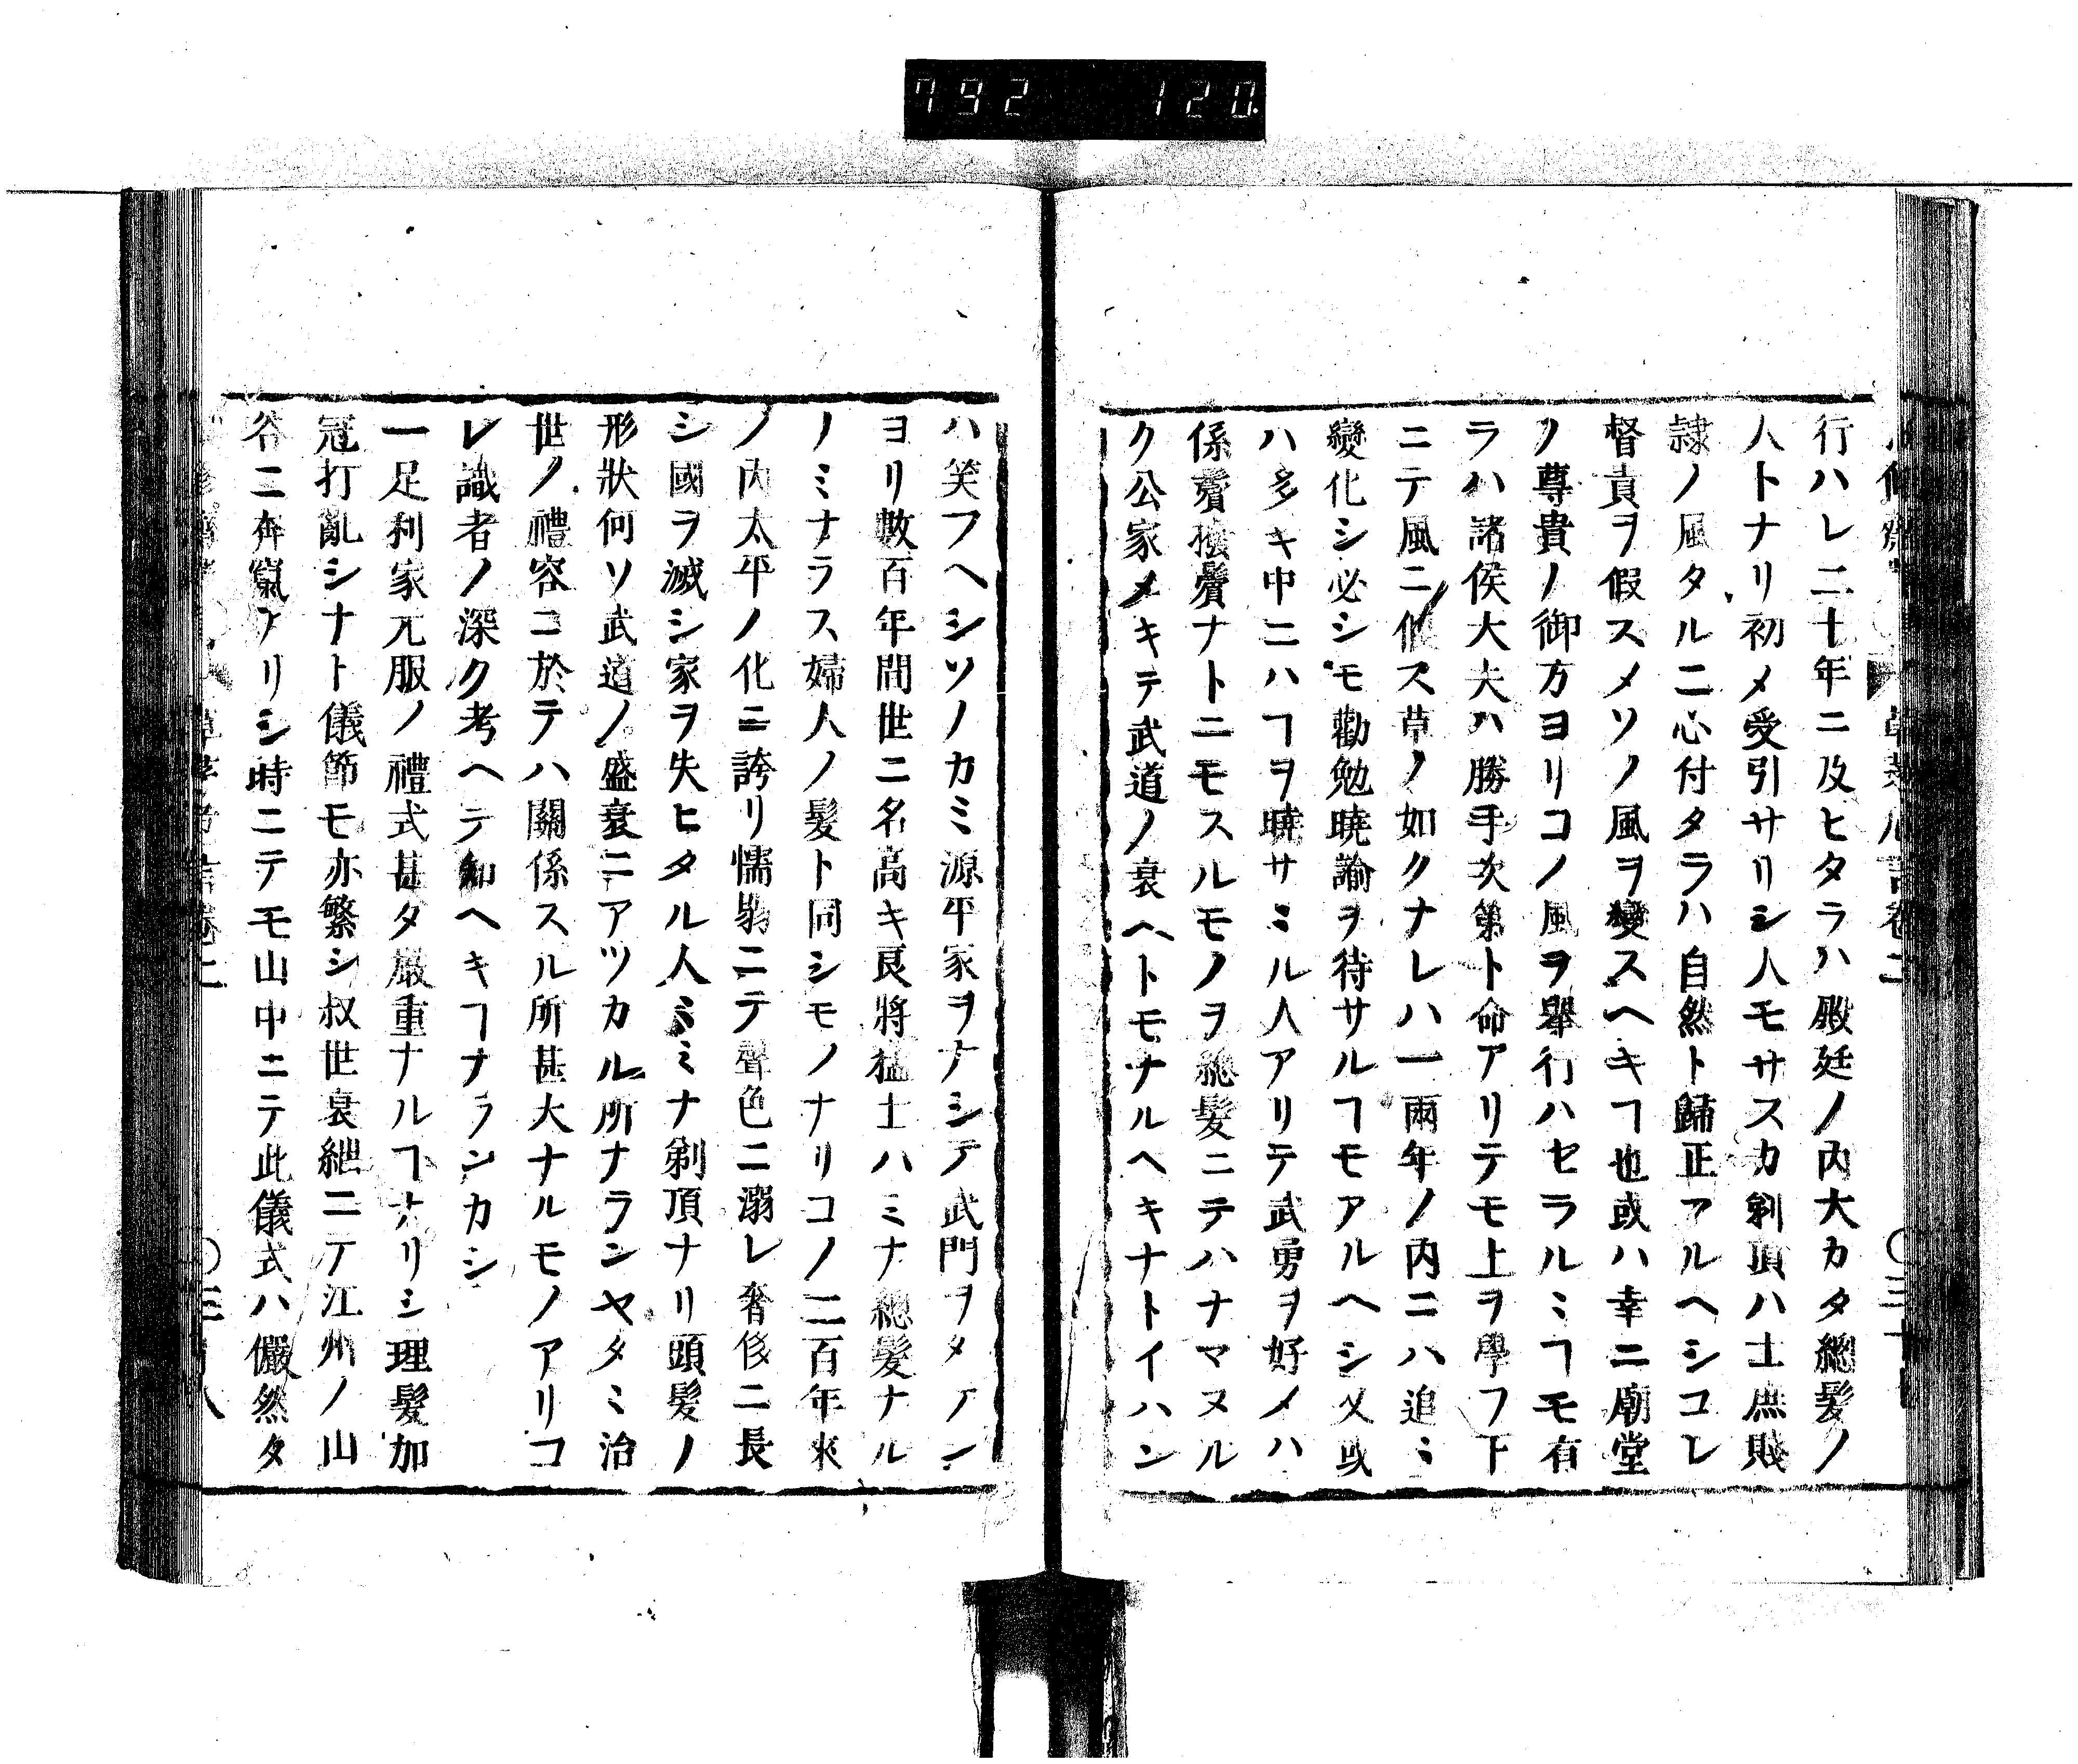 792 120
行ハレ二十年ニ及ヒタラハ殿廷ノ内大カタ總髮ノ
人トナリ初メ受引サリシ人モサスカ剃頂ハ士庶賤
隷ノ風タルニ心付タラハ自然ト歸正アルヘシコレ
督責ヲ假スメソノ風ヲ變スヘキヿ也或ハ幸ニ廟堂
ノ尊貴ノ御方ヨリコノ風ヲ擧行ハセラルミヿモ有
ラハ諸侯大夫ハ勝手次第ト命アリテモ上ヲ學フ下
ニテ風ニ偃ス草ノ如クナレハ一兩年ノ内ニハ追ミ
變化シ必シモ勸勉曉諭ヲ待サルヿモアルヘシ又或
ハ多キ中ニハヿヲ曉サミル人アリテ武勇ヲ好メハ
係鬢撥鬢ナトニモスルモノヲ總髮ニテハナマヌル
ク公家メキテ武道ノ衰ヘトモナルヘキナトイハン
ハ笑フヘシソノカミ源平家ヲナシテ武門ヲタテン
ヨリ數百年間世ニ名高キ良將猛士ハミナ總髮ナル
ノミナラス婦人ノ髮ト同シモノナリコノ二百年來
ノ内太平ノ化ニ誇リ懦弱ニテ聲色ニ溺レ奢侈ニ長
シ國ヲ滅シ家ヲ失ヒタル人ミミナ剃頂ナリ頭髮ノ
形狀何ソ武道ノ盛衰ニアツカル所ナランヤタミ治
世ノ禮容ニ於テハ關係スル所甚大ナルモノアリコ
レ識者ノ深ク考ヘテ知ヘキヿナランカシ
一足利家元服ノ禮式甚タ嚴重ナルヿナリシ理髮加
冠打亂シナト儀節モ亦繁シ叔世衰紲ニテ江州ノ山
谷ニ奔竄アリシ時ニテモ山中ニテ此儀式ハ儼然タ